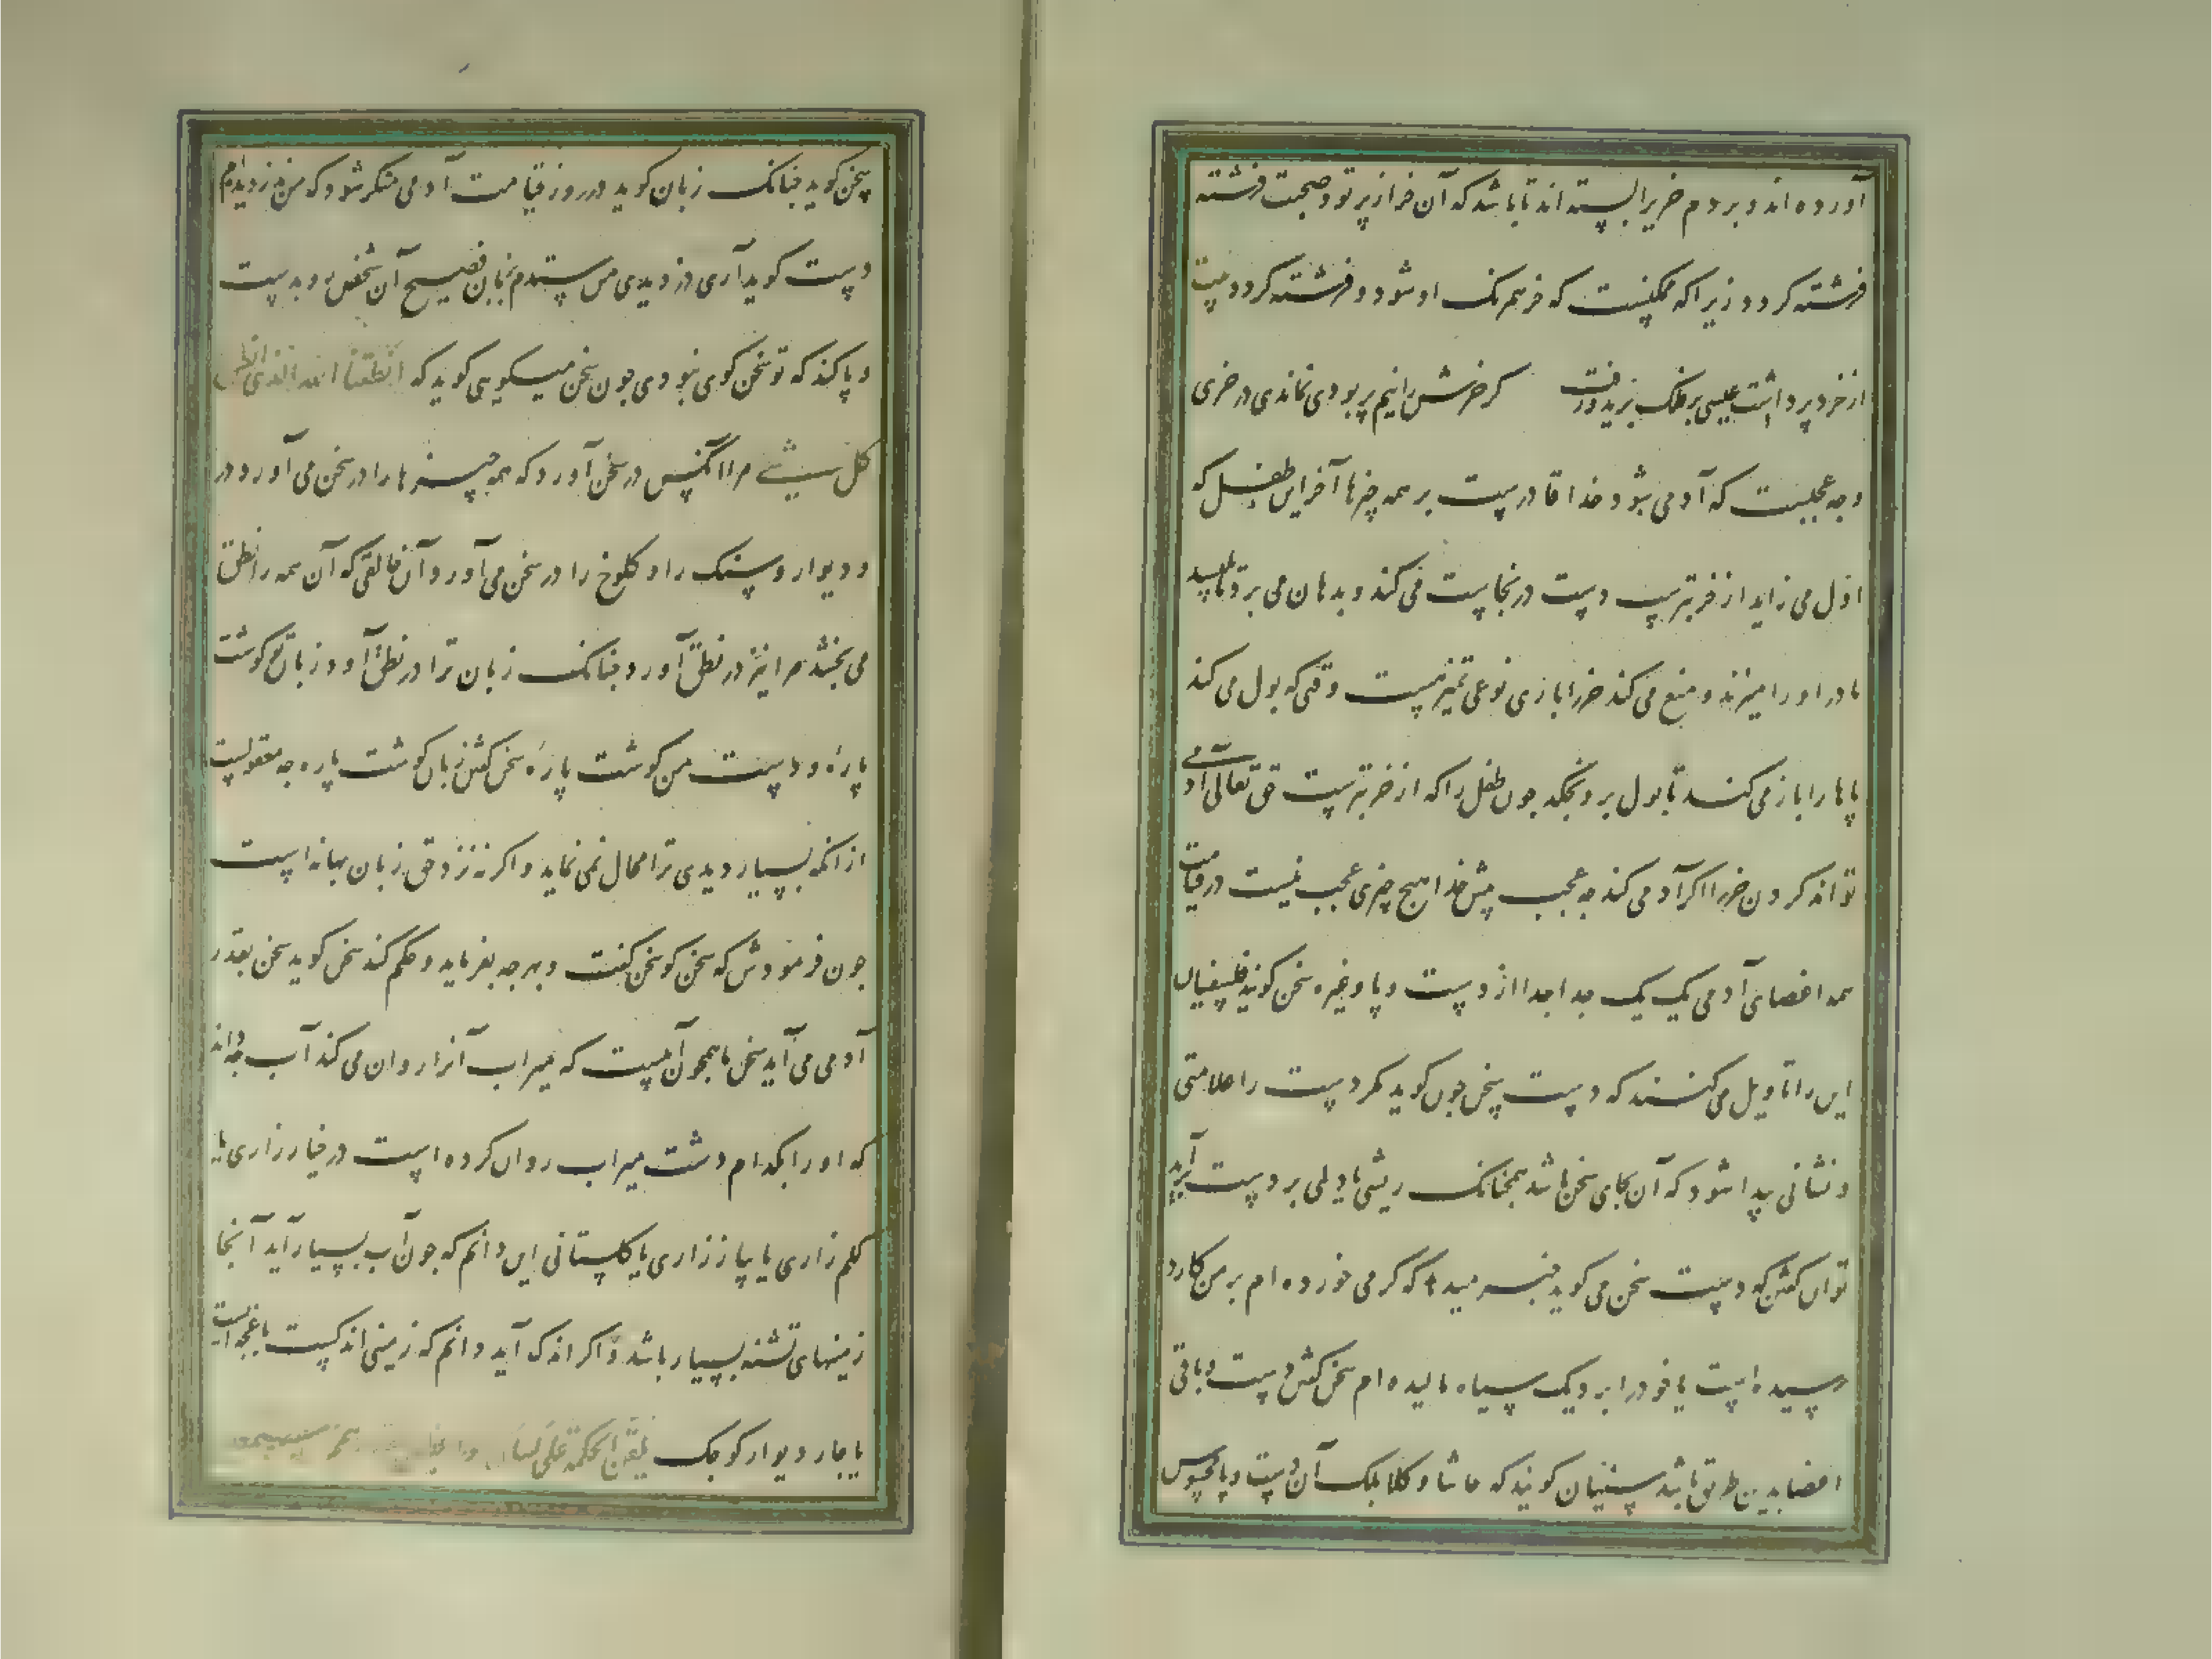 آورده‌اند و بر دم خری را بسته‌اند تا باشد که آن خر از پرتو و صحبت فرشته
فرشته کردد زیرا که ممکنست که خر همرنک او شود و فرشته کردد بیت
از خرد پر داشت عیسی بر فلک پرید و رفت    کر خرش را نیم پر بودی نماندی در خری
و چه عجبست که آدمی شود خدا قادرست بر همه چیزها آخر این طفل که
اول می زاید از خر بترست دست در نجاست می کند و بدهان می برد تا بلیسد
مادر او را میزند و منع می کند خر را باری نوعی تمییز هست وقتی که بول می کند
پاها را باز می کند تا بول برو نچکد چون طفل را که از خر بترست حق تعالی آدمی
تواند کردن خر را اکر آدمی کند چه عجب پیش خدا هیچ چیزی عجب نیست در قیامت
همه اعضای آدمی یک یک جدا جدا از دست و پا و غیره سخن کویند فلسفیان
این را تاویل می کنند که دست سخن چون کوید مکر دست را علامتی
و نشانی پیدا شود که آن بجای سخن باشد همچنانک ریشی یا دملی بر دست برآید
توان کفتن که دست سخن می کوید خبر میدهد که کرمی خورده‌ام بر من کارد
رسیده است یا خود را بر دیک سیاه مالیده‌ام سخن کفتن دست و باقی
اعضا بدین طریق باشد سنیان کویند که حاشا و کلا بلک آن دست و پا محسوس
سخن کوید چنانک زبان کوید در روز قیامت آدمی منکر شود که من ندزدیده‌ام
دست کوید آری دزدیدی من ستدم بزبان فصیح آن شخص رو بدست
و پا کند که تو سخن کوی نبودی چون سخن میکویی کوید که انطقنا الله الذی انطق
کل شیئ مرا آنکس در سخن آورد که همه چیزها را در سخن می آورد در
و دیوار و سنک را و کلوخ را در سخن می آورد و آن خالقی که آن همه را نطق
می بخشد مرا نیز در نطق آورد چنانک زبان ترا در نطق آورد زبان تو کوشت
پارهٔ و دست من کوشت پارهٔ سخن کفتن زبان کوشت پاره چه معقولست
از آنکه بسیار دیدی ترا محال نمی نماید و اکر نه نزد حق زبان بهانه است
چون فرمودش که سخن کو سخن کفت و بهرچه بفرماید و حکم کند سخن کوید سخن بقدر
آدمی می آید سخن ما همچون آبیست که میراب آنرا روان می کند آب چه داند
که او را بکدام دشت میراب روان کرده است در خیارزاری یا
کلم زاری یا پیاززاری یا کلستانی این دانم که چون آب بسیار آید آنجا
زمینهای تشنه بسیار باشد و اکر اندک آید دانم که زمینی اندکست باغچه است
یا چار دیوار کوچک یلقن الحکمة علی لسان